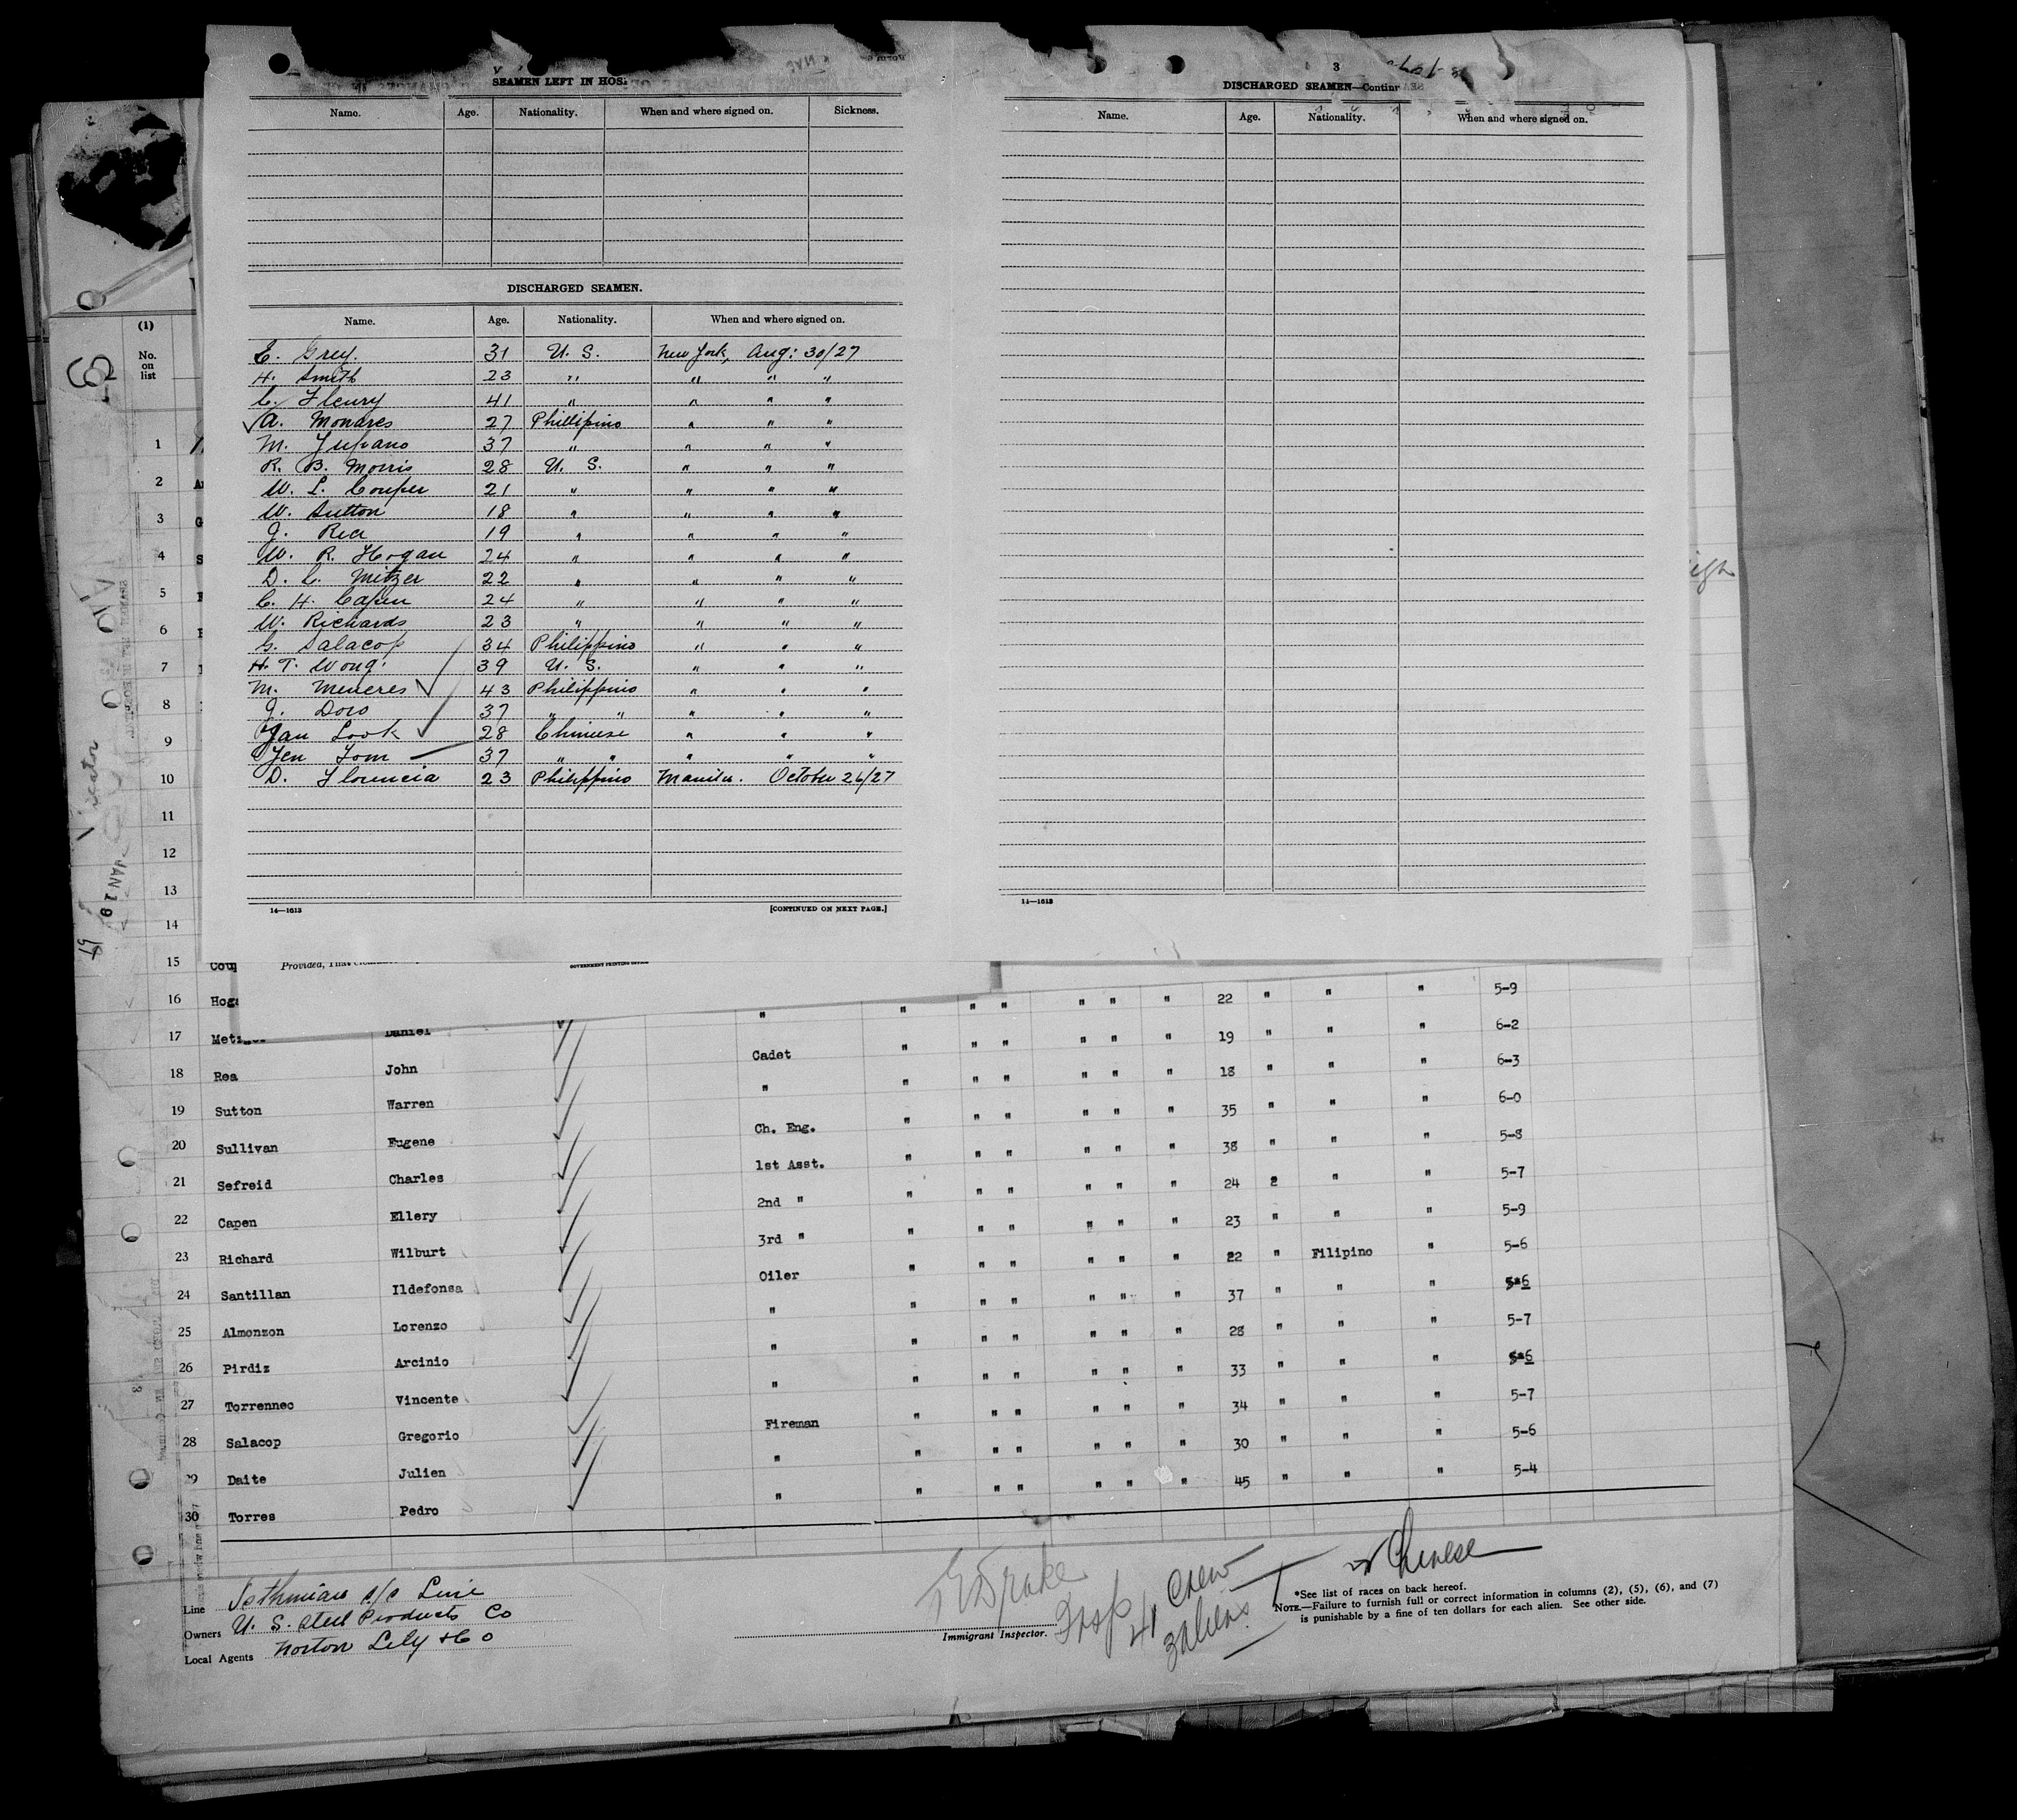 SEAMEN LEFT IN HOS
Name. Age. Nationality. When and where signed on. Sickness.
DISCHARGED SEAMEN.
Name. Age. Nationality. When and where signed on.
E. Grey. 31 U. S. New York, Aug: 30/27
H. Smith 23 " " " "
C. Fleury 41 " " " "
A. Monares 27 Phillipino " " "
M. 37 " " " "
R. B. Morris 28 U. S. " " "
W. L. Couper 21 " " " "
W. Sutton 18 " " " "
J. Rea 19 " " " "
W. R. Hogan 24 " " " "
D. C. Mitzer 22 " " " "
C. H. Capen 24 " " " "
W. Richards 23 " " " "
G. Salacop 34 Philippino " " "
H. T. Wong. 39 U. S. " " "
M. Meneres 43 Philippino " " "
J. Doro 37 " " " " "
Yan Look 28 Chinese " " "
Yen Tom 37 " " " " "
D. Florencia 23 Philippino Manila. October 26/27
14—1613 [CONTINUED ON NEXT PAGE.]
3
DISCHARGED SEAMEN—Contin
Name. Age. Nationality. When and where signed on.
14—1613
(1)
No. on list
1
2
3
4
5
6
7
8
9
10
11
12
13
14
JAN 19
15 Cou
Provided,
GOVERNMENT PRINTING OFFICE
16 Hog " " " " " " " 22 " " " 5-9
17 Met Daniel Cadet " " " " " " 19 " " " 6-2
18 Rea John " " " " " " " 18 " " " 6-3
19 Sutton Warren Ch. Eng. " " " " " " 35 " " " 6-0
20 Sullivan Eugene 1st Asst. " " " " " " 38 " " " 5-8
21 Sefreid Charles 2nd " " " " " " " 24 2 " " 5-7
22 Capen Ellery 3rd " " " " " " " 23 " " " 5-9
23 Richard Wilburt Oiler " " " " " " 22 " Filipino " 5-6
24 Santillan Ildefonsa " " " " " " " 37 " " " 5-6
25 Almonzon Lorenzo " " " " " " " 28 " " " 5-7
26 Pirdiz Arcinio " " " " " " " 33 " " " 5-6
27 Torrennec Vincente Fireman " " " " " " 34 " " " 5-7
28 Salacop Gregorio " " " " " " " 30 " " " 5-6
29 Daite Julien " " " " " " " 45 " " " 5-4
30 Torres Pedro
Line Isthmian S/S Line
Owners U. S. Steel Products Co
Local Agents Norton Lily & Co
Drake
Insp
Immigrant Inspector.
41 Crew
3 aliens
Chinese
*See list of races on back hereof.
NOTE.—Failure to furnish full or correct information in columns (2), (5), (6), and (7)
is punishable by a fine of ten dollars for each alien. See other side.